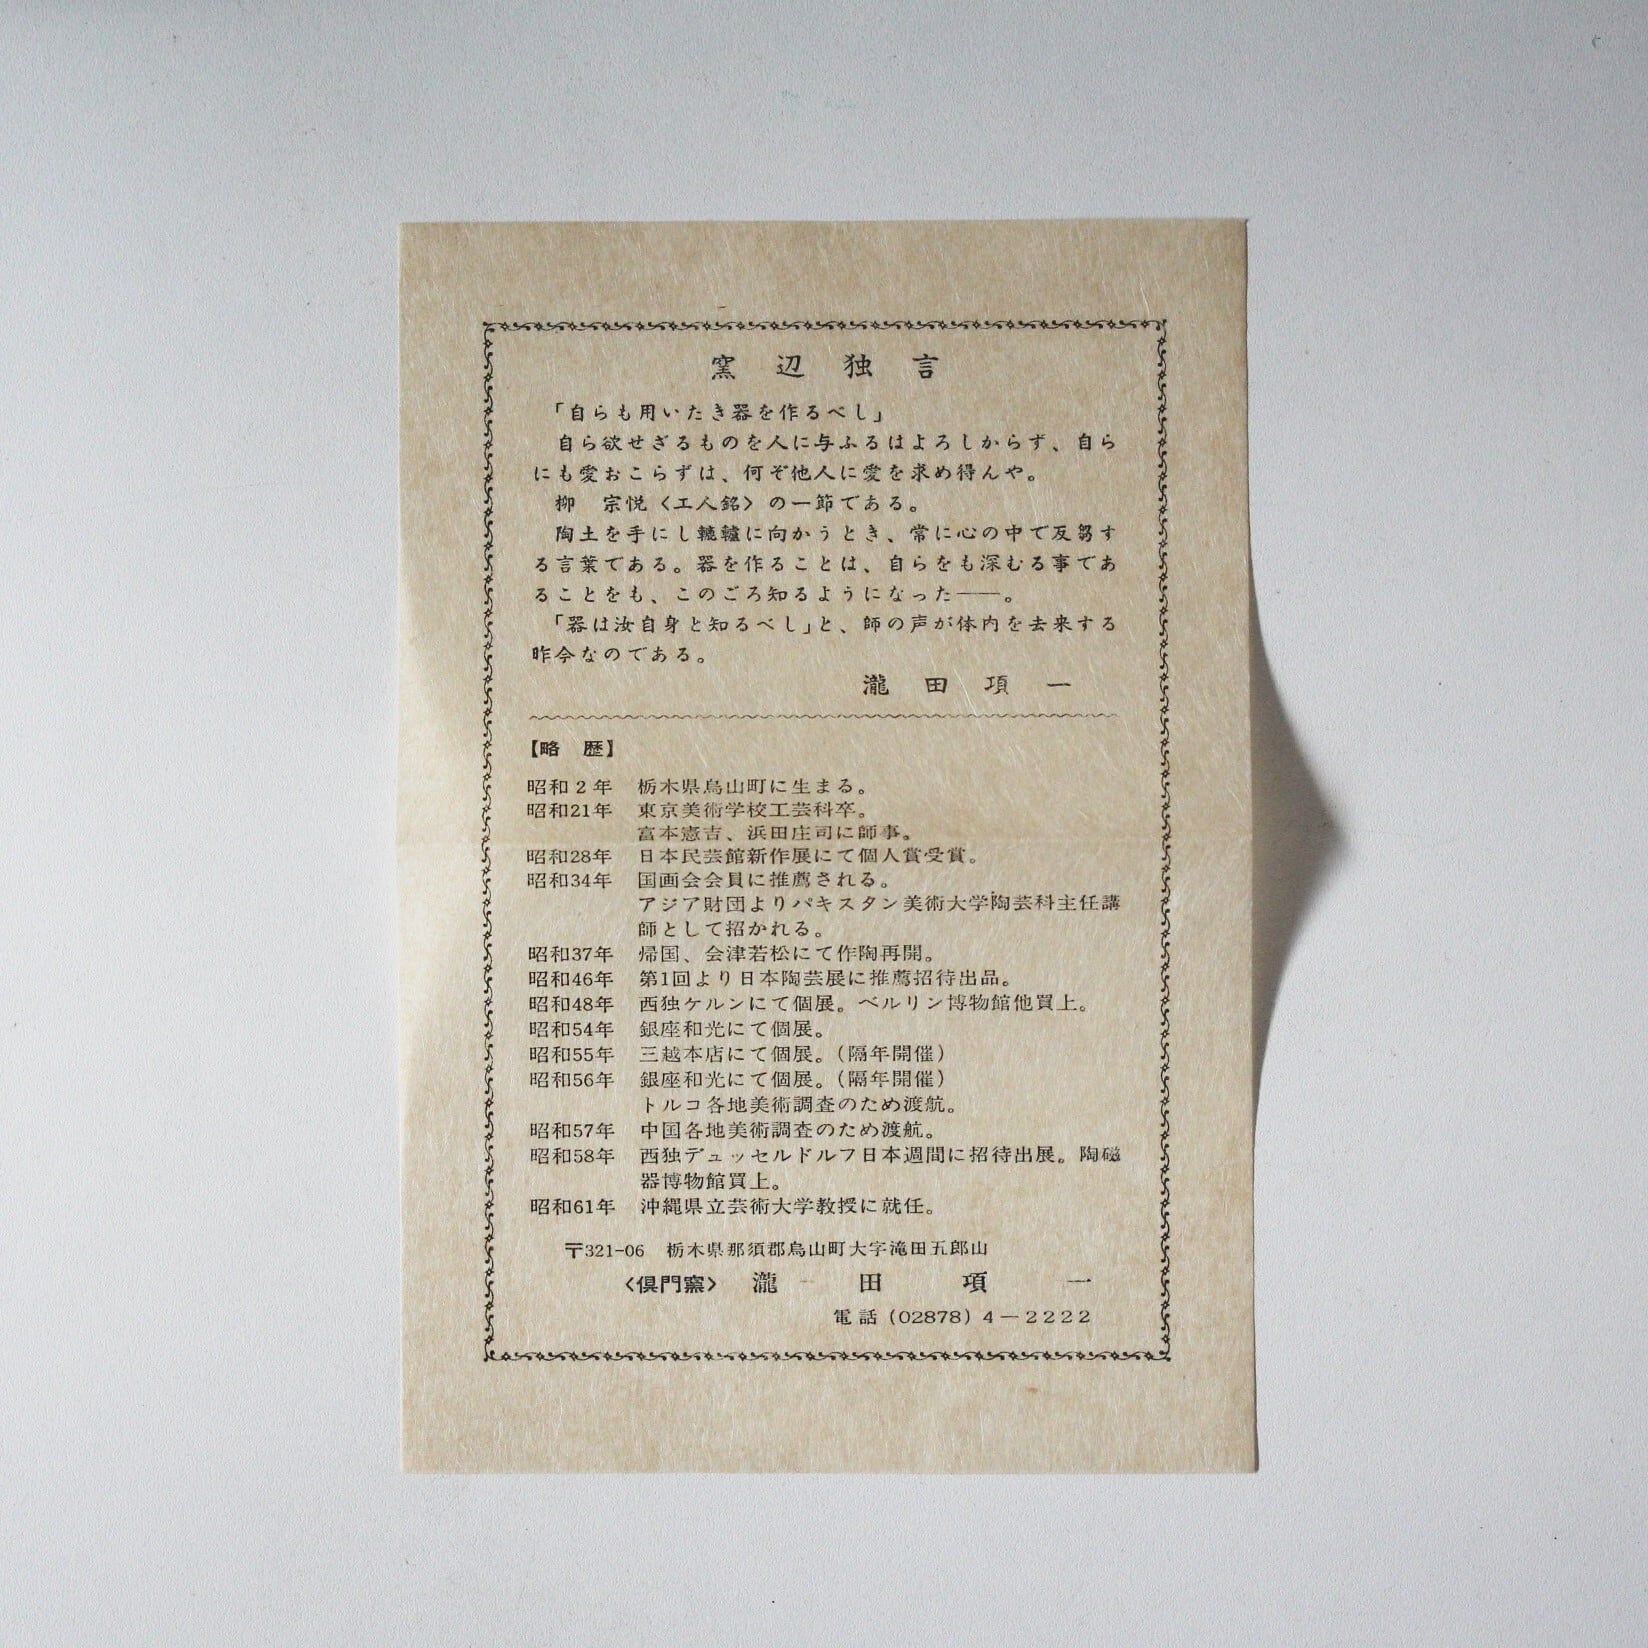 窯辺独言
「自らも用いたき器を作るべし」
自ら欲せざるものを人に与ふるはよろしからず、自ら
にも愛おこらずは、何ぞ他人に愛を求め得んや。
柳　宗悦〈工人銘〉の一節である。
陶土を手にし轆轤に向かうとき、常に心の中で反芻す
る言葉である。器を作ることは、自らをも深むる事であ
ることをも、このごろ知るようになった——。
「器は汝自身と知るべし」と、師の声が体内を去来する
昨今なのである。
瀧田項一
【略　歴】
昭和2年　栃木県烏山町に生まる。
昭和21年　東京美術学校工芸科卒。
富本憲吉、浜田庄司に師事。
昭和28年　日本民芸館新作展にて個人賞受賞。
昭和34年　国画会会員に推薦される。
アジア財団よりパキスタン美術大学陶芸科主任講
師として招かれる。
昭和37年　帰国、会津若松にて作陶再開。
昭和46年　第1回より日本陶芸展に推薦招待出品。
昭和48年　西独ケルンにて個展。ベルリン博物館他買上。
昭和54年　銀座和光にて個展。
昭和55年　三越本店にて個展。（隔年開催）
昭和56年　銀座和光にて個展。（隔年開催）
トルコ各地美術調査のため渡航。
昭和57年　中国各地美術調査のため渡航。
昭和58年　西独デュッセルドルフ日本週間に招待出展。陶磁
器博物館買上。
昭和61年　沖縄県立芸術大学教授に就任。
〒321-06　栃木県那須郡烏山町大字滝田五郎山
〈倶門窯〉　瀧田項一
電話（02878）4－2222